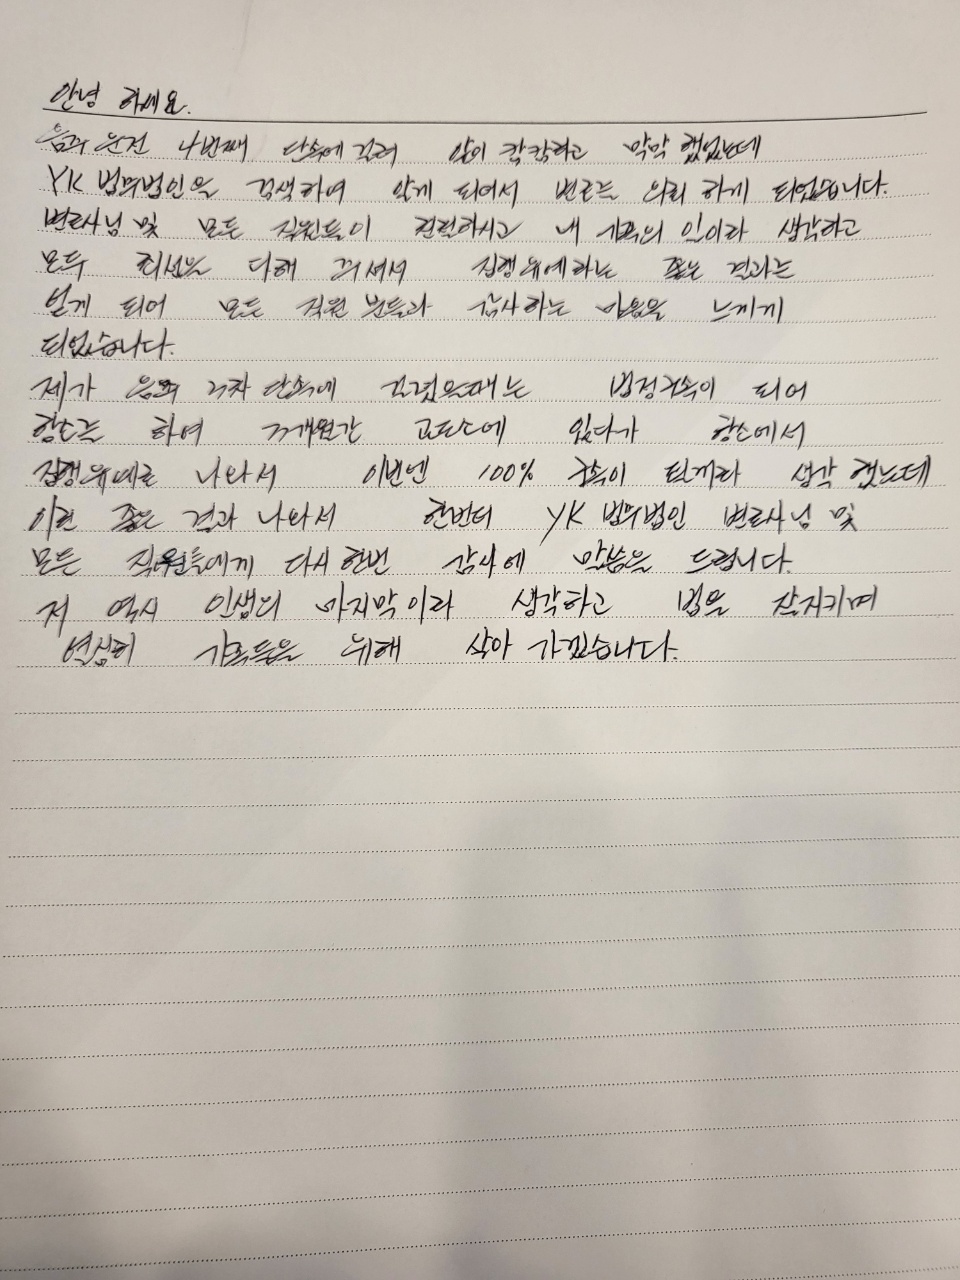 안녕 하세요.
음주 운전 4번째 단속에 걸려 앞이 캄캄하고 막막 했었는데
YK 법무법인을 검색하여 알게 되어서 변론을 의뢰 하게 되었습니다.
변호사님 및 모든 직원들이 친절하시고 내 가족의 일이라 생각하고
모두 최선을 다해 주셔서 집행유예라는 좋은 결과를
얻게 되어 모든 직원 분들과 감사하는 마음을 느끼게
되었습니다.
제가 음주 3차 단속에 걸렸을때는 법정구속이 되어
항소를 하여 3개월간 교도소에 있다가 항소에서
집행유예로 나와서 이번엔 100% 구속이 될꺼라 생각 했는데
이런 좋은 결과 나와서 한번더 YK 법무법인 변호사님 및
모든 직원들에게 다시 한번 감사에 말씀을 드립니다.
저 역시 인생의 마지막이라 생각하고 법을 잘지키며
열심히 가족들을 위해 살아 가겠습니다.